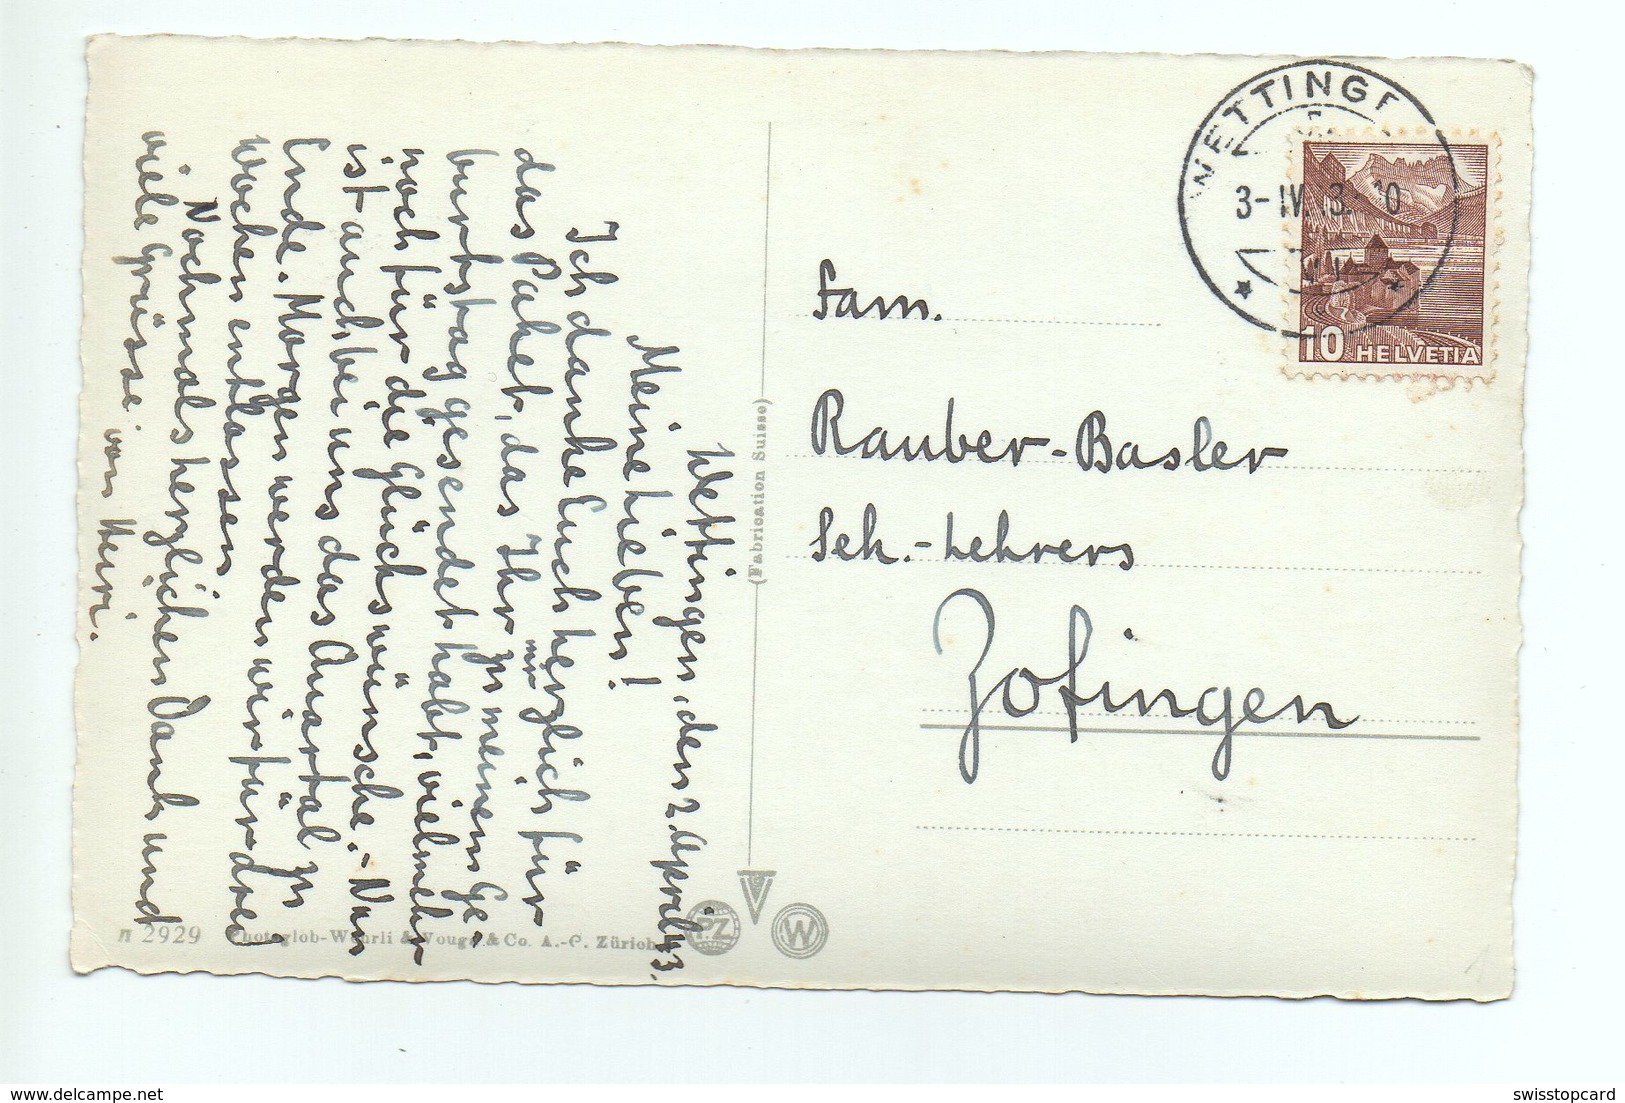 Wettingen, den 2. April 43.
Meine Lieben!
Ich danke Euch herzlich für
das Paket, das Ihr mir zu meinem Ge-
burtstag gesendet habt, vielmehr
noch für die Glückswünsche. - Nun
ist auch bei uns das Quartal zu
Ende. Morgen werden wir für drei
Wochen entlassen
Nochmals herzlichen Dank und
viele Grüsse von Heiri.
(Fabrication Suisse)
2929 Photoglob-Wehrli & Vouga & Co. A.-G. Zürich
P.Z
W
WETTINGE
3-IV. 43. 10
10 HELVETIA
Fam.
Rauber-Basler
Sek.-Lehrers
Zofingen
delcampe.net
swisstopcard